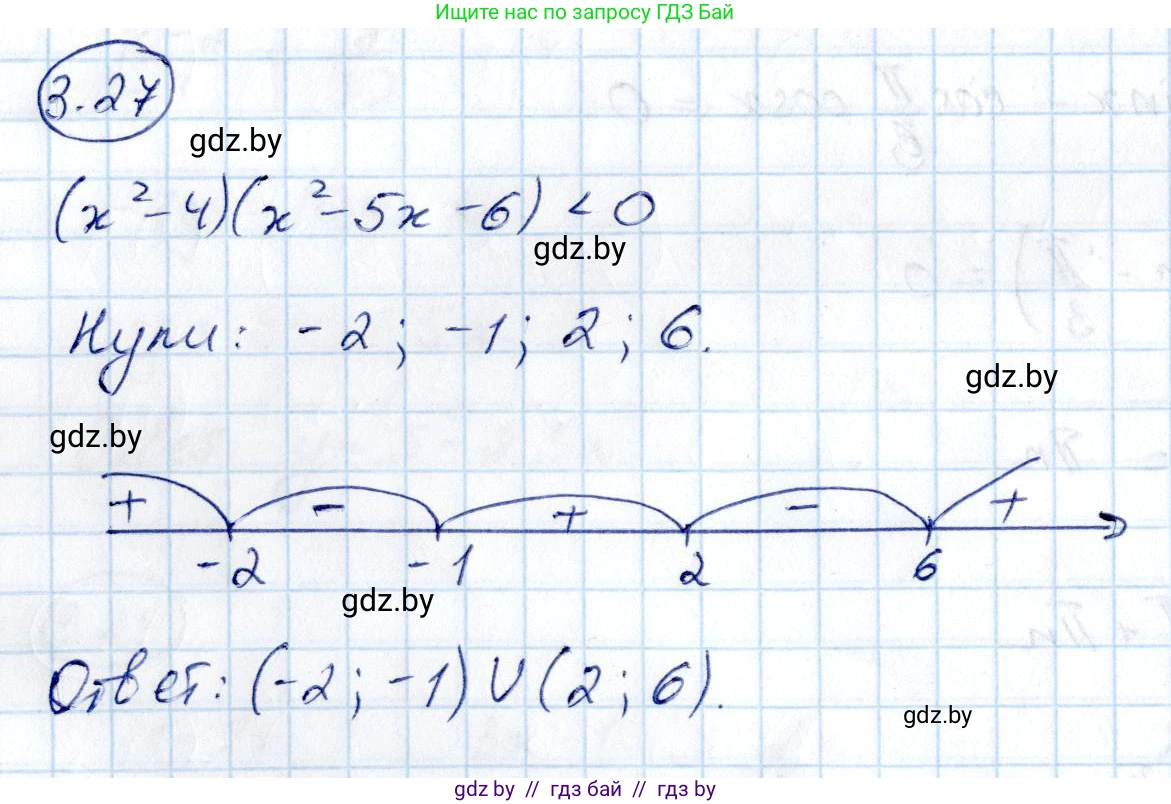 Ищите нас по запросу ГДЗ Бай
3.27
gdz.by
(x² - 4)(x² - 5x - 6) < 0
gdz.by
Нули: -2; -1; 2; 6.
gdz.by
gdz.by
+ - + - +
-2 -1 2 6
gdz.by
Ответ: (-2; -1) ∪ (2; 6).
gdz.by
gdz by // гдз бай // гдз by